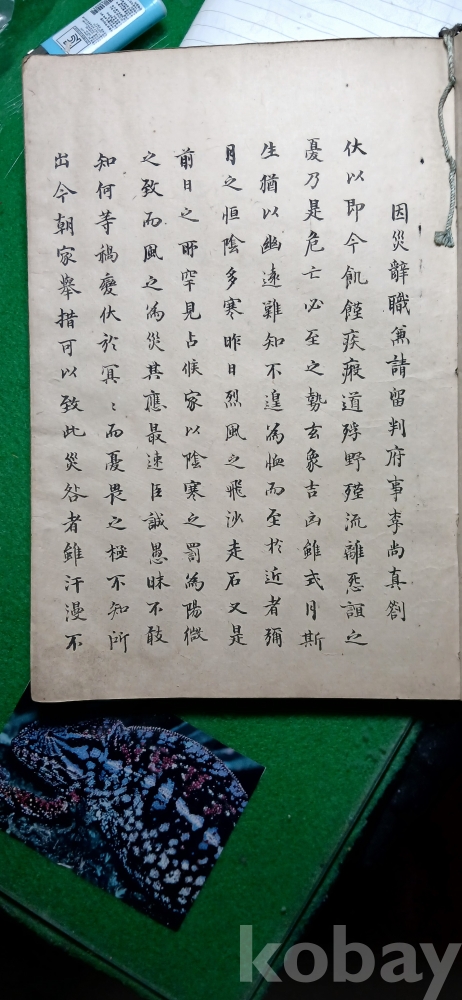 因災辭職兼請留判府事李尚真劄
伏以即今飢饉疾癘道殣野殍流離怨詛之
憂乃是危亡必至之勢玄象吉凶雖式月斯
生猶以幽遠難知不遑為恤而至於近者彌
月之恒陰多寒昨日烈風之飛沙走石又是
前日之所罕見占候家以陰寒之罰為陽微
之致而風之為災其應最速臣誠愚昧不敢
知何等禍變伏於冥〻而憂畏之極不知所
出今朝家舉措可以致此災咎者雖汗漫不
kobay